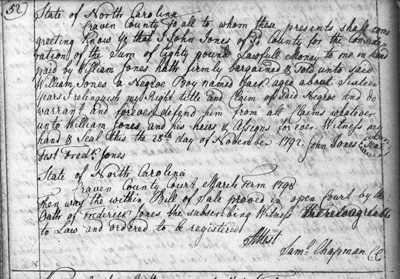 52
State of North Carolina
Craven County To all to whom these presents shall come
greeting Know Ye that I John Jones of Sd County for the Conside-
ration of the Sum of Eighty pounds Lawfull money to me in hand
paid by William Jones hath firmly bargained & Sold unto said
William Jones a Negroe Boy named aged about Sixteen
years I relinquish my Right title and Claim of said Negroe and do
warrant and forever defend him from all Claims whatever
unto William Jones and his heirs & assigns forever Witness my
hand & Seal this the 28th day of November 1797. John Jones Seal
Test Fredk. Jones
State of North Carolina
Craven County Court March Term 1798
Then was the within Bill of Sale proved in open Court by the
Oath of Frederick Jones the subscribing Witness thereto agreeable
to Law and ordered to be registered
Attest
Saml. Chapman CC